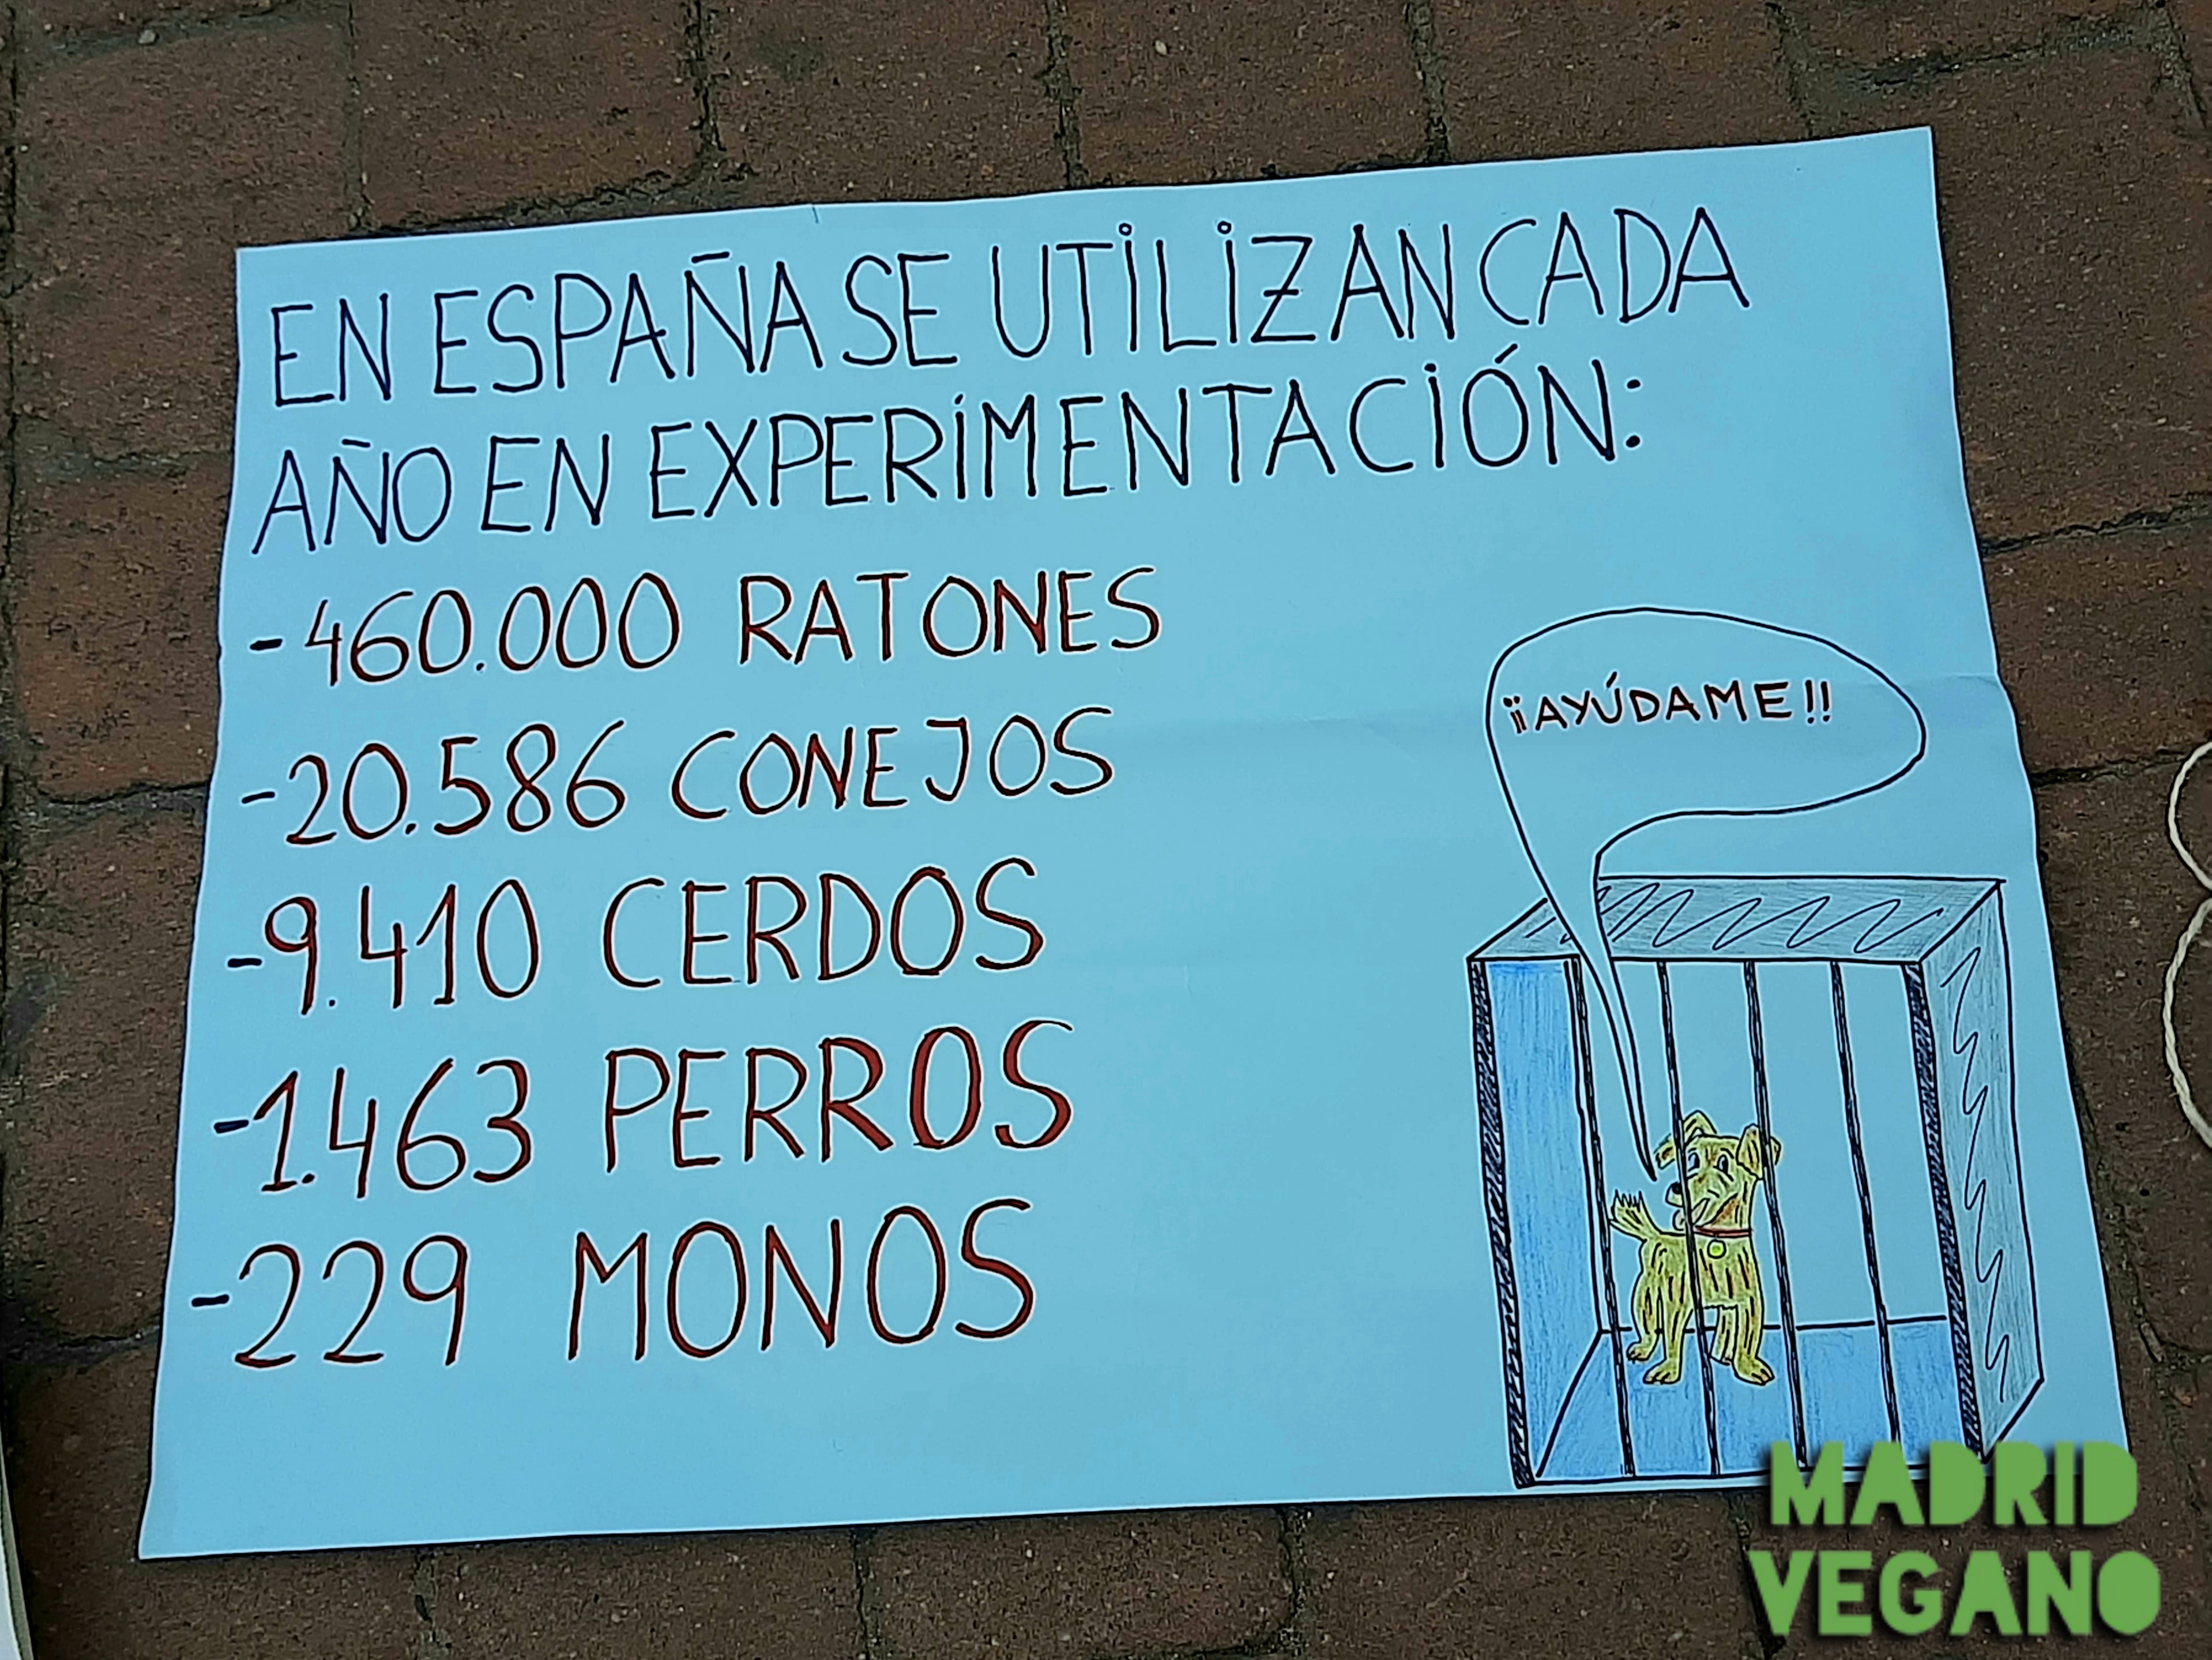 EN ESPAÑA SE UTILIZAN CADA
AÑO EN EXPERIMENTACIÓN:
-460.000 RATONES
-20.586 CONEJOS
-9.410 CERDOS
-1.463 PERROS
-229 MONOS
¡¡AYÚDAME!!
MADRID
VEGANO